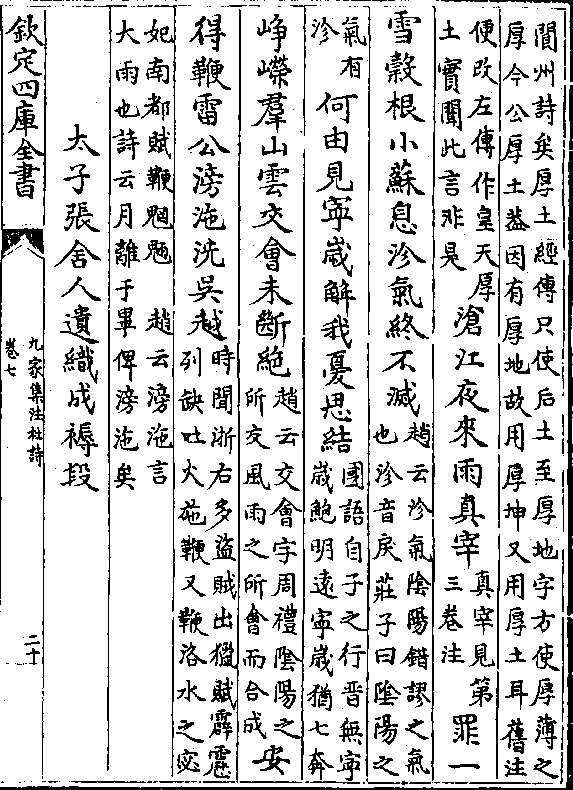 閬州詩矣厚土經傳只使后土至厚地字方使厚薄之
厚今公厚土蓋因有厚地故用厚坤又用厚土耳舊注
便改左傳作皇天厚
土實聞此言非是
滄江夜來雨真宰
真宰見第
三卷注
罪一
雪穀根小蘇息沴氣終不滅
趙云沴氣陰陽錯謬之氣
也沴音戾莊子曰陰陽之
氣有
沴
何由見寧歲解我憂思結
國語自子之行晉無寧
歲鮑明遠寧歲猶七奔
崢嶸羣山雲交會未斷絶
趙云交會字周禮陰陽之
所交風雨之所會而合成
安
得鞭雷公滂沲洗吳越
時聞浙右多盜賊出獵賦霹靂
列缺吐火施鞭又鞭洛水之宓
妃南都賦鞭魍魎 趙云滂沲言
大雨也詩云月離于畢俾滂沲矣
太子張舍人遺織成褥段
欽定四庫全書
九家集注杜詩
卷七
二十